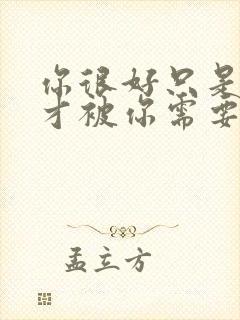 你很好只是
才被你需要
孟立方